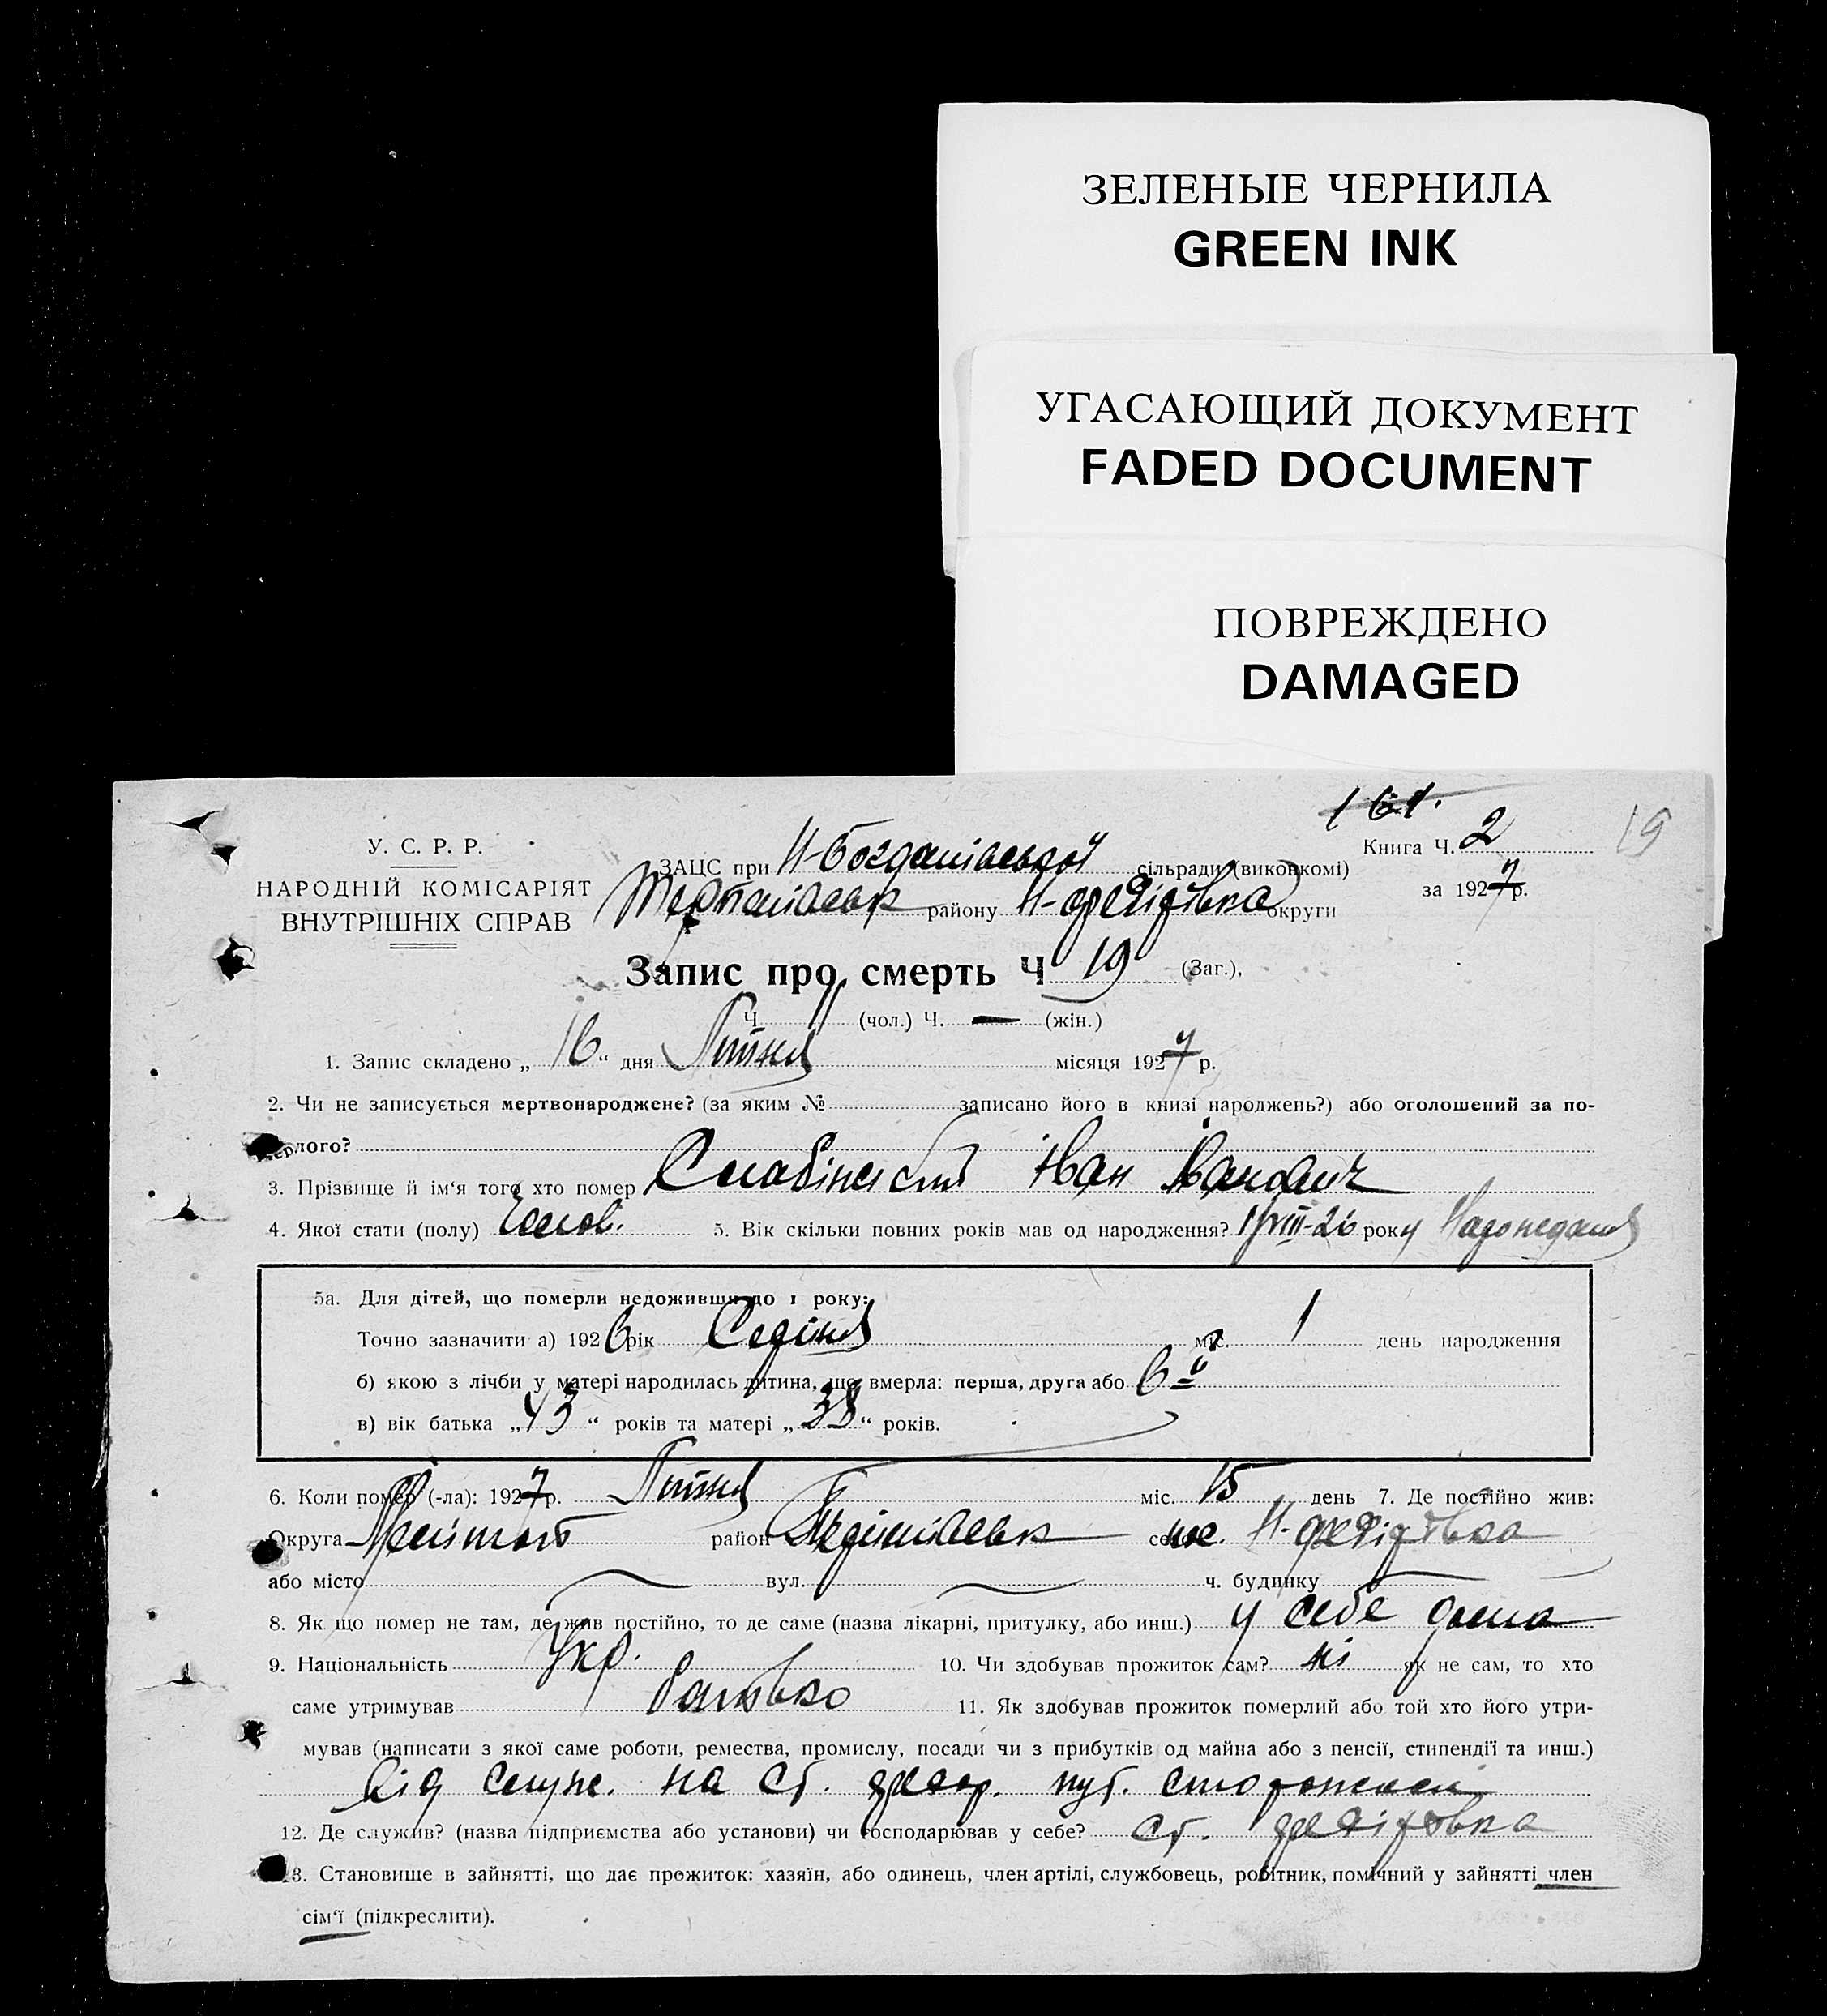 ЗЕЛЕНЫЕ ЧЕРНИЛА
GREEN INK
УГАСАЮЩИЙ ДОКУМЕНТ
FADED DOCUMENT
ПОВРЕЖДЕНО
DAMAGED
161.
19
У. С. Р. Р.
НАРОДНІЙ КОМІСАРІЯТ
ВНУТРІШНІХ СПРАВ
Книга Ч. 2
за 1927 р.
ЗАЦС при Н-Богданівської сільради (виконкомі)
району округи
Запис про смерть Ч 19 (Заг.),
Ч. (чол.) Ч. — (жін.)
1. Запис складено „ 16 “ дня Липня місяця 1927 р.
2. Чи не записується мертвонароджене? (за яким № записано його в книзі народжень?) або оголошений за по-
мерлого?
3. Прізвище й ім'я того хто помер Іван Іванович
4. Якої стати (полу) Чолов. 5. Вік скільки повних років мав од народження? 1/VIII-26 року
5а. Для дітей, що померли недоживши до 1 року:
Точно зазначити а) 1926 рік Серпня міс. 1 день народження
б) якою з лічби у матері народилась дитина, що вмерла: перша, друга або 6й
в) вік батька „ 43 “ років та матері „ 38 “ років.
6. Коли помер (-ла): 1927 р. Липня міс. 15 день 7. Де постійно жив:
Округа район село
або місто — вул. — ч. будинку —
8. Як що помер не там, де жив постійно, то де саме (назва лікарні, притулку, або инш.) у себе дома
9. Національність Укр. 10. Чи здобував прожиток сам? ні як не сам, то хто
саме утримував батько 11. Як здобував прожиток померлий або той хто його утри-
мував (написати з якої саме роботи, ремества, промислу, посади чи з прибутків од майна або з пенсії, стипендії та инш.)
від служ. на ст. пут. сторожем
12. Де служив? (назва підприємства або установи) чи господарював у себе? ст.
13. Становище в зайнятті, що дає прожиток: хазяїн, або одинець, член артілі, службовець, робітник, помічний у зайнятті член
сім'ї (підкреслити).